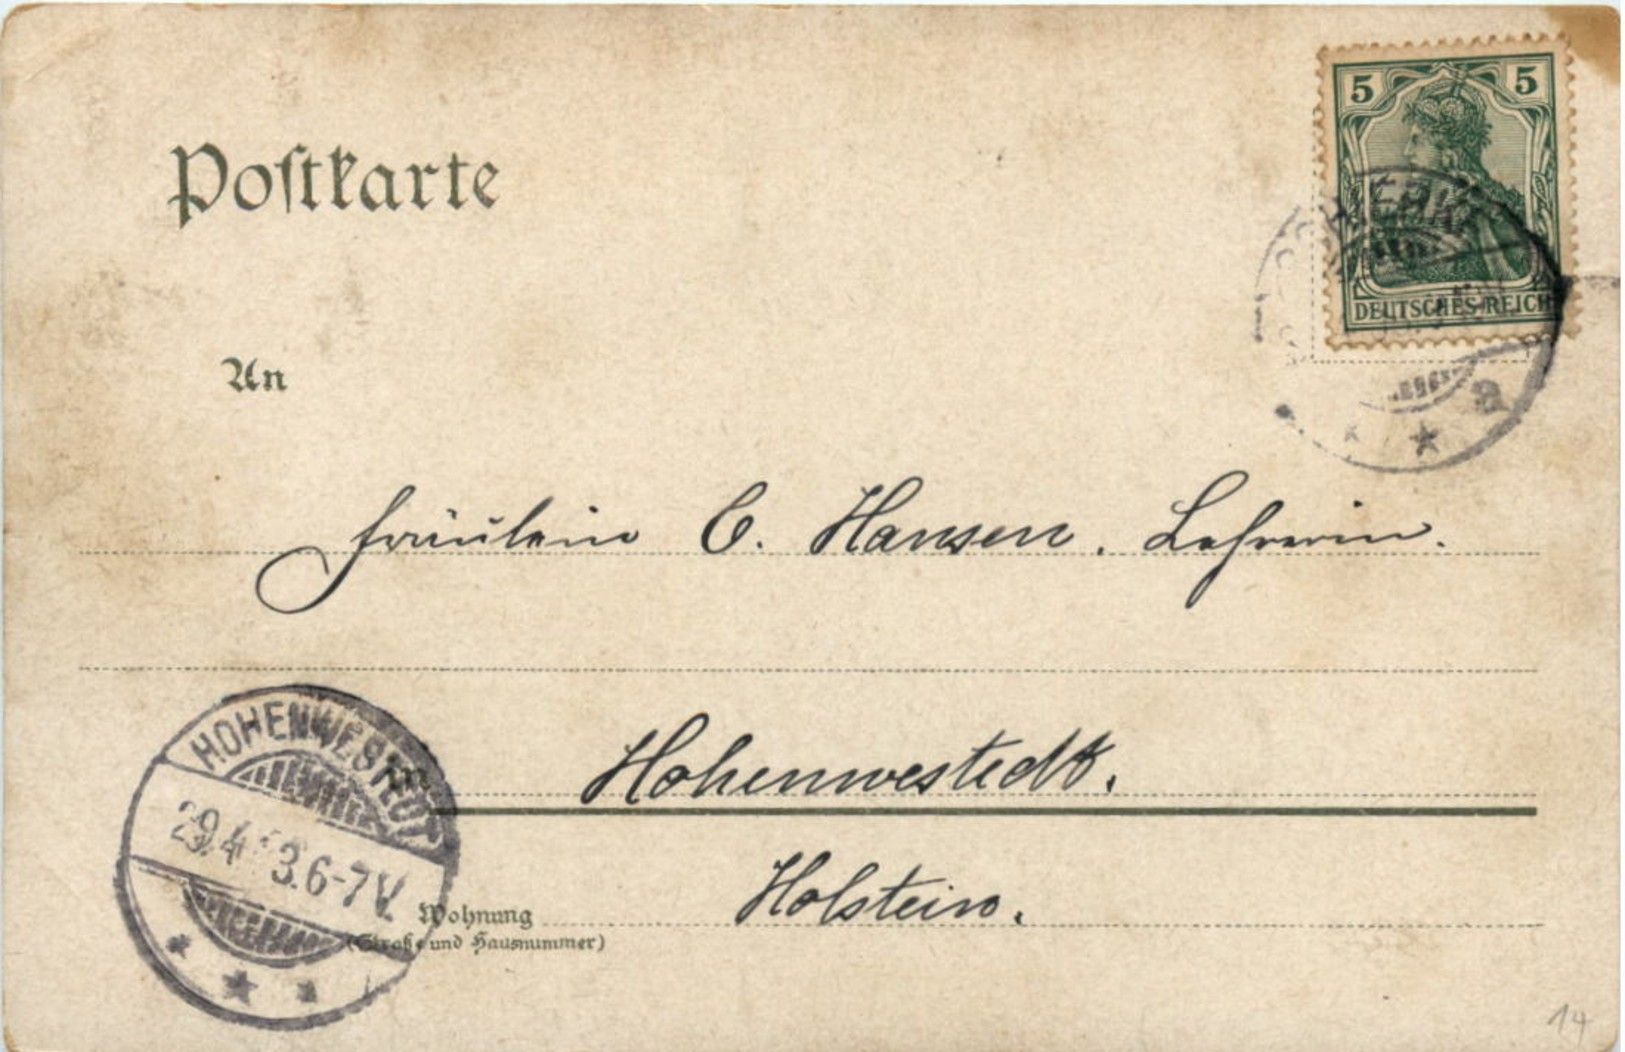 5 5
Postkarte
DEUTSCHES REICH
An
a
Fräulein C. Hansen. Lehrerin.
Hohenwestedt.
HOHENWESTEDT
29.4. 3.6-7V.
Holstein.
Wohnung
(Straße und Hausnummer)
14